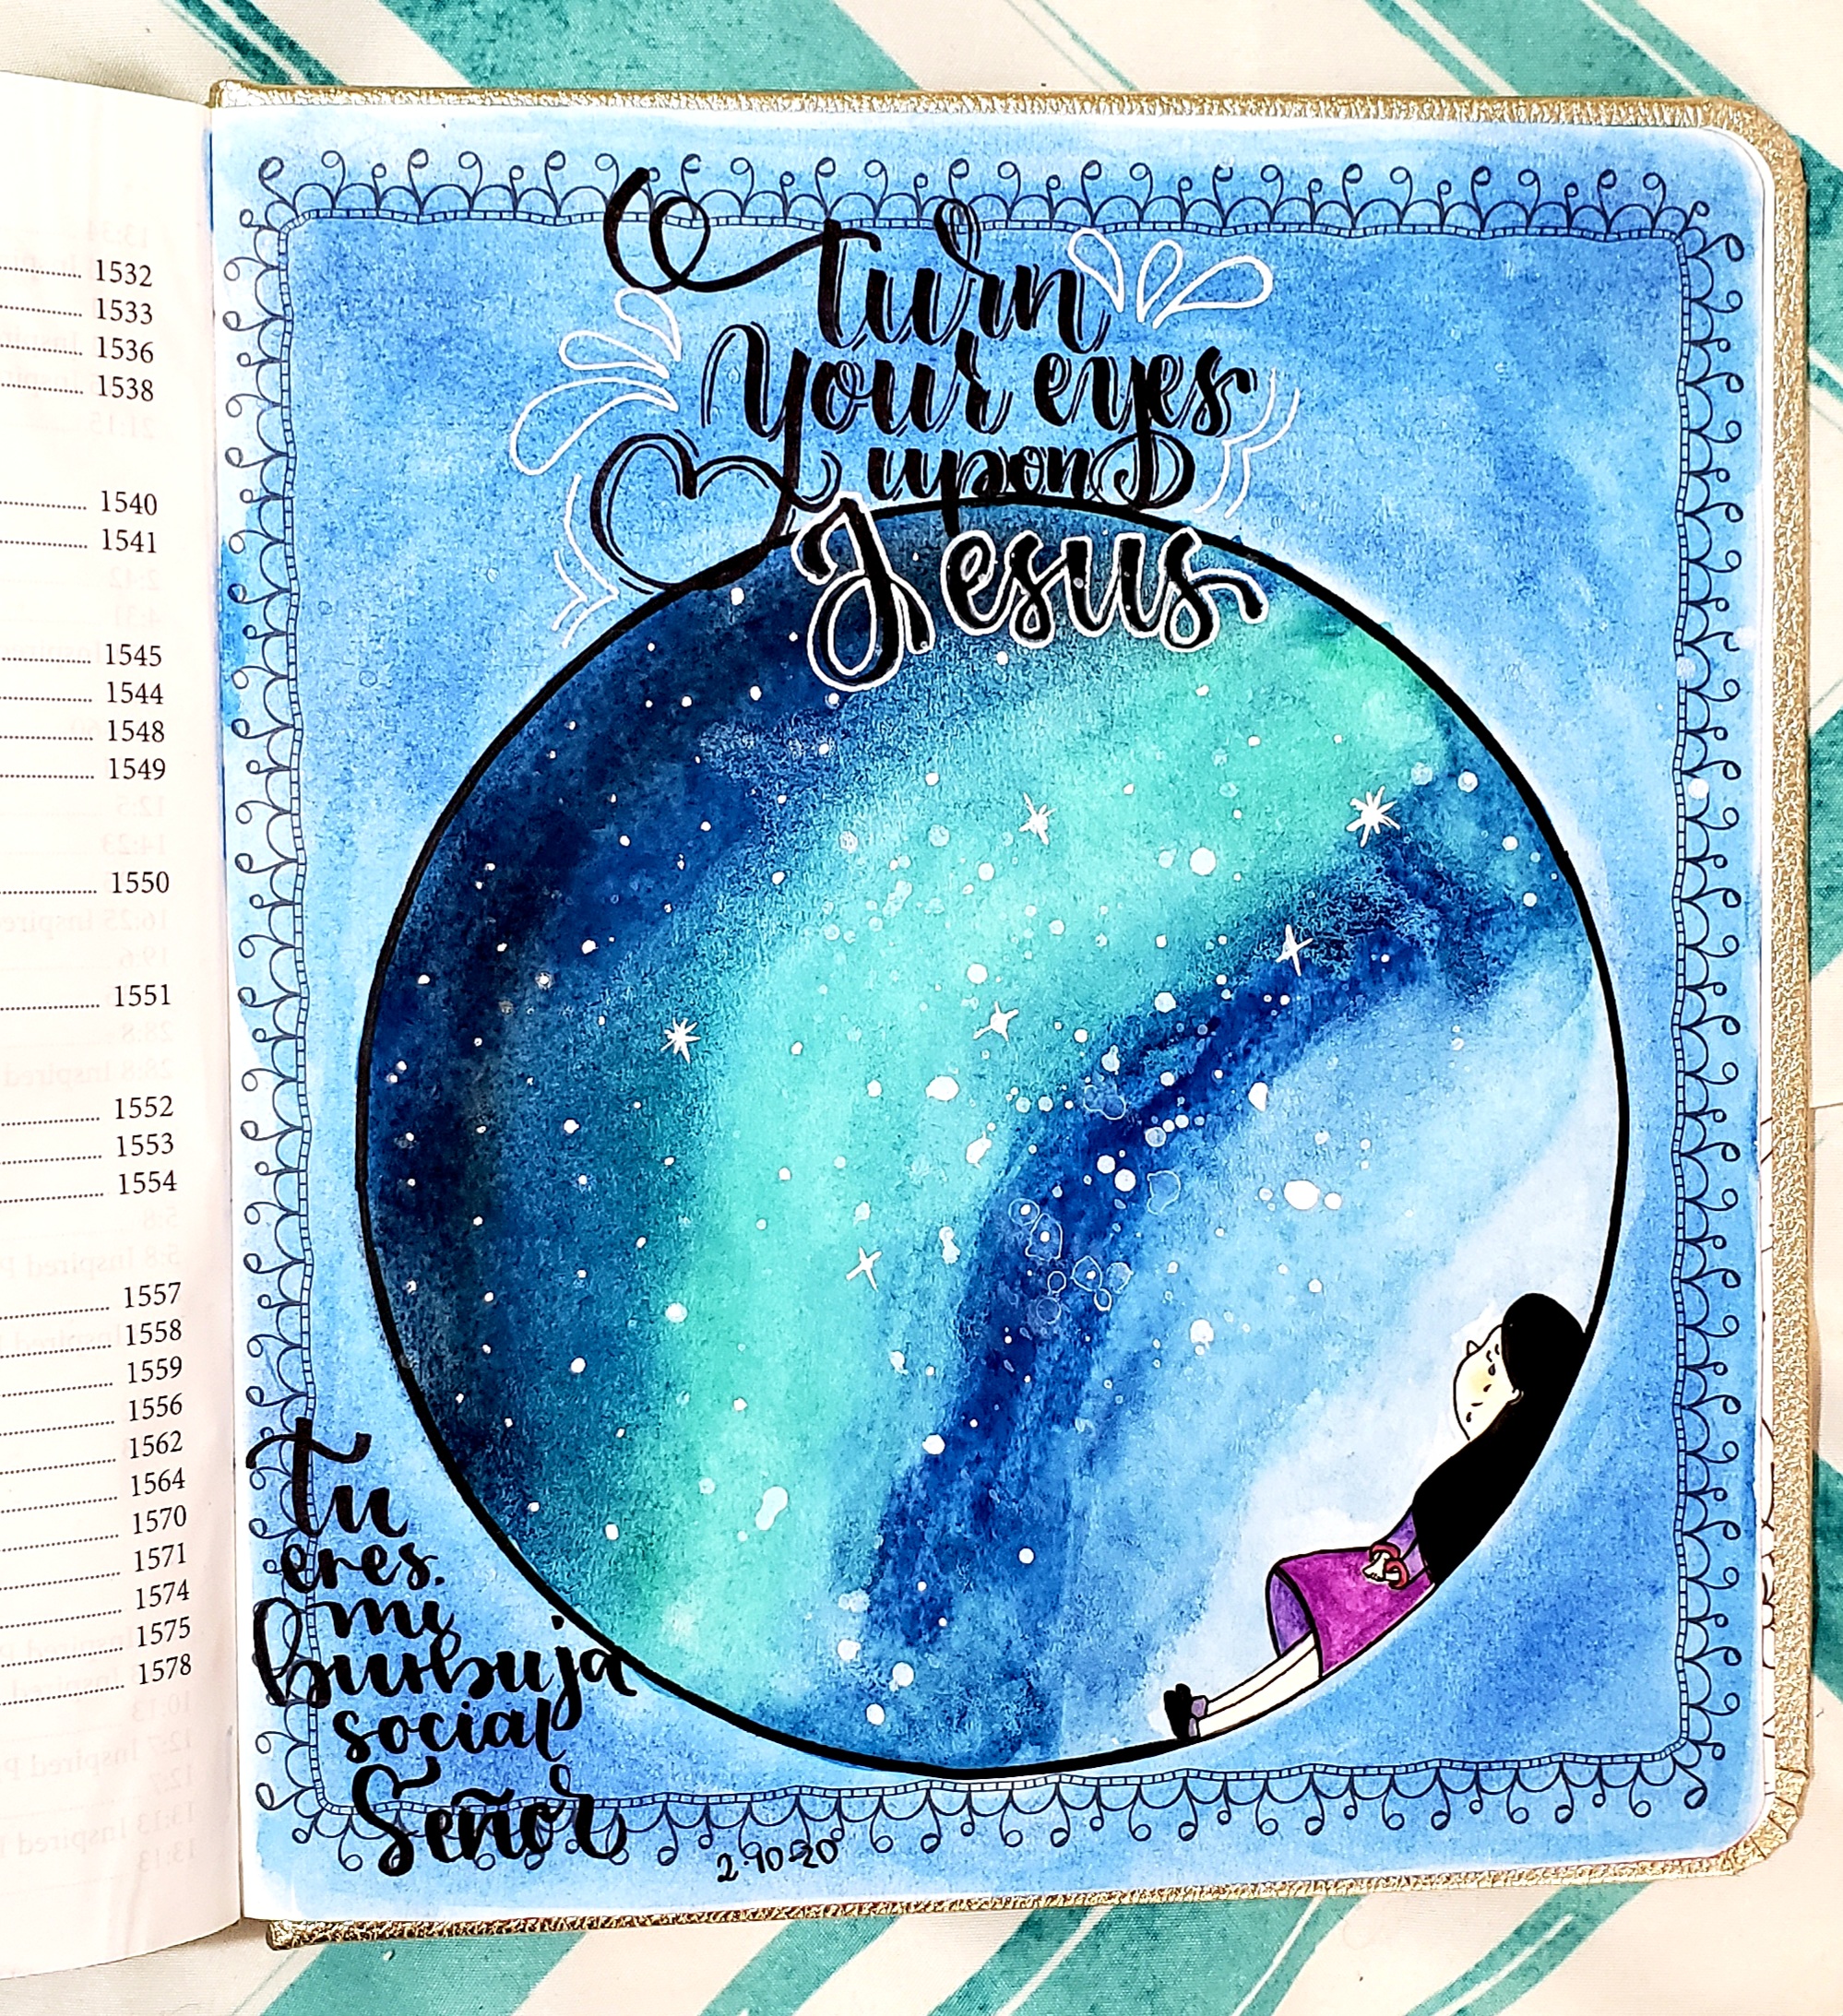 1532
1533
1536
1538
1540
1541
1545
1544
1548
1549
1550
1551
1552
1553
1554
1557
1558
1559
1556
1562
1564
1570
1571
1574
1575
1578
turn
your eyes
upon
Jesus
Tu
eres.
mi
Burbuja
social
Señor
2.10.20